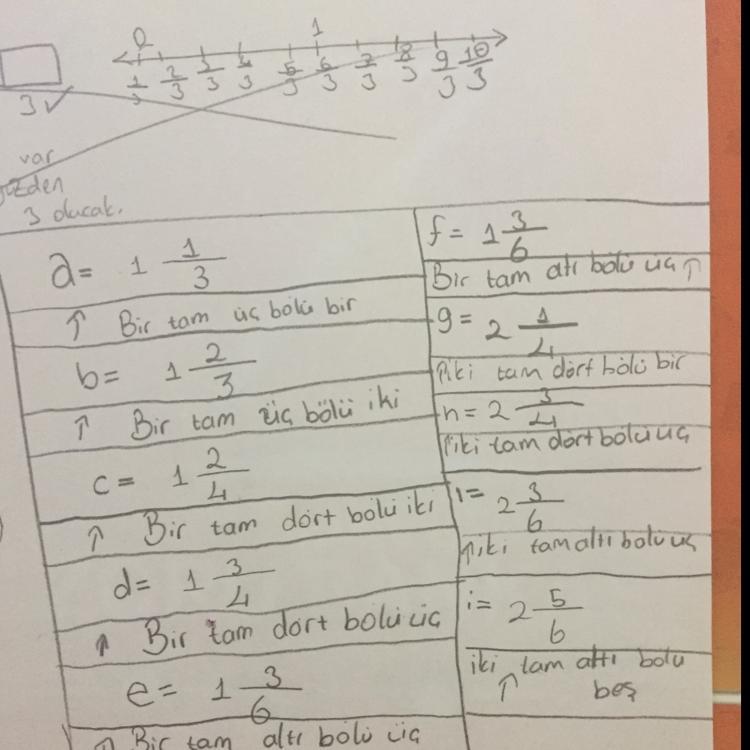 0 1
1/3 2/3 3/3 4/3 5/3 6/3 7/3 8/3 9/3 10/3
3 ✓
var
üzden
3 olucak.
a= 1 1/3
↑ Bir tam üç bölü bir
b= 1 2/3
↑ Bir tam üç bölü iki
c= 1 2/4
↑ Bir tam dört bölü iki
d= 1 3/4
↑ Bir tam dört bölü üç
e= 1 3/6
↑ Bir tam altı bölü üç
f= 1 3/6
Bir tam altı bölü üç ↑
g= 2 1/4
↑iki tam dört bölü bir
h= 2 3/4
↑iki tam dört bölü üç
ı= 2 3/6
↑iki tam altı bölü üç
i= 2 5/6
iki ↑ tam altı bölü
beş